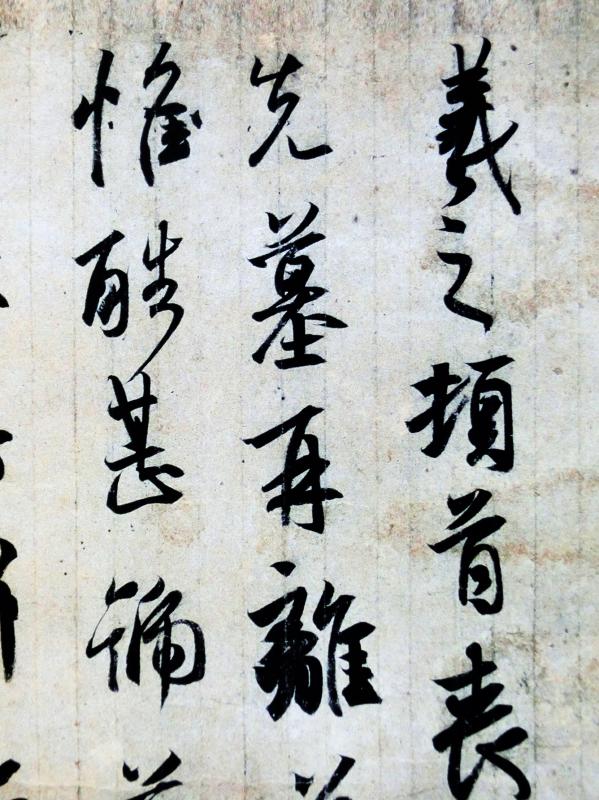 羲之頓首喪
先墓再離
惟酷甚號